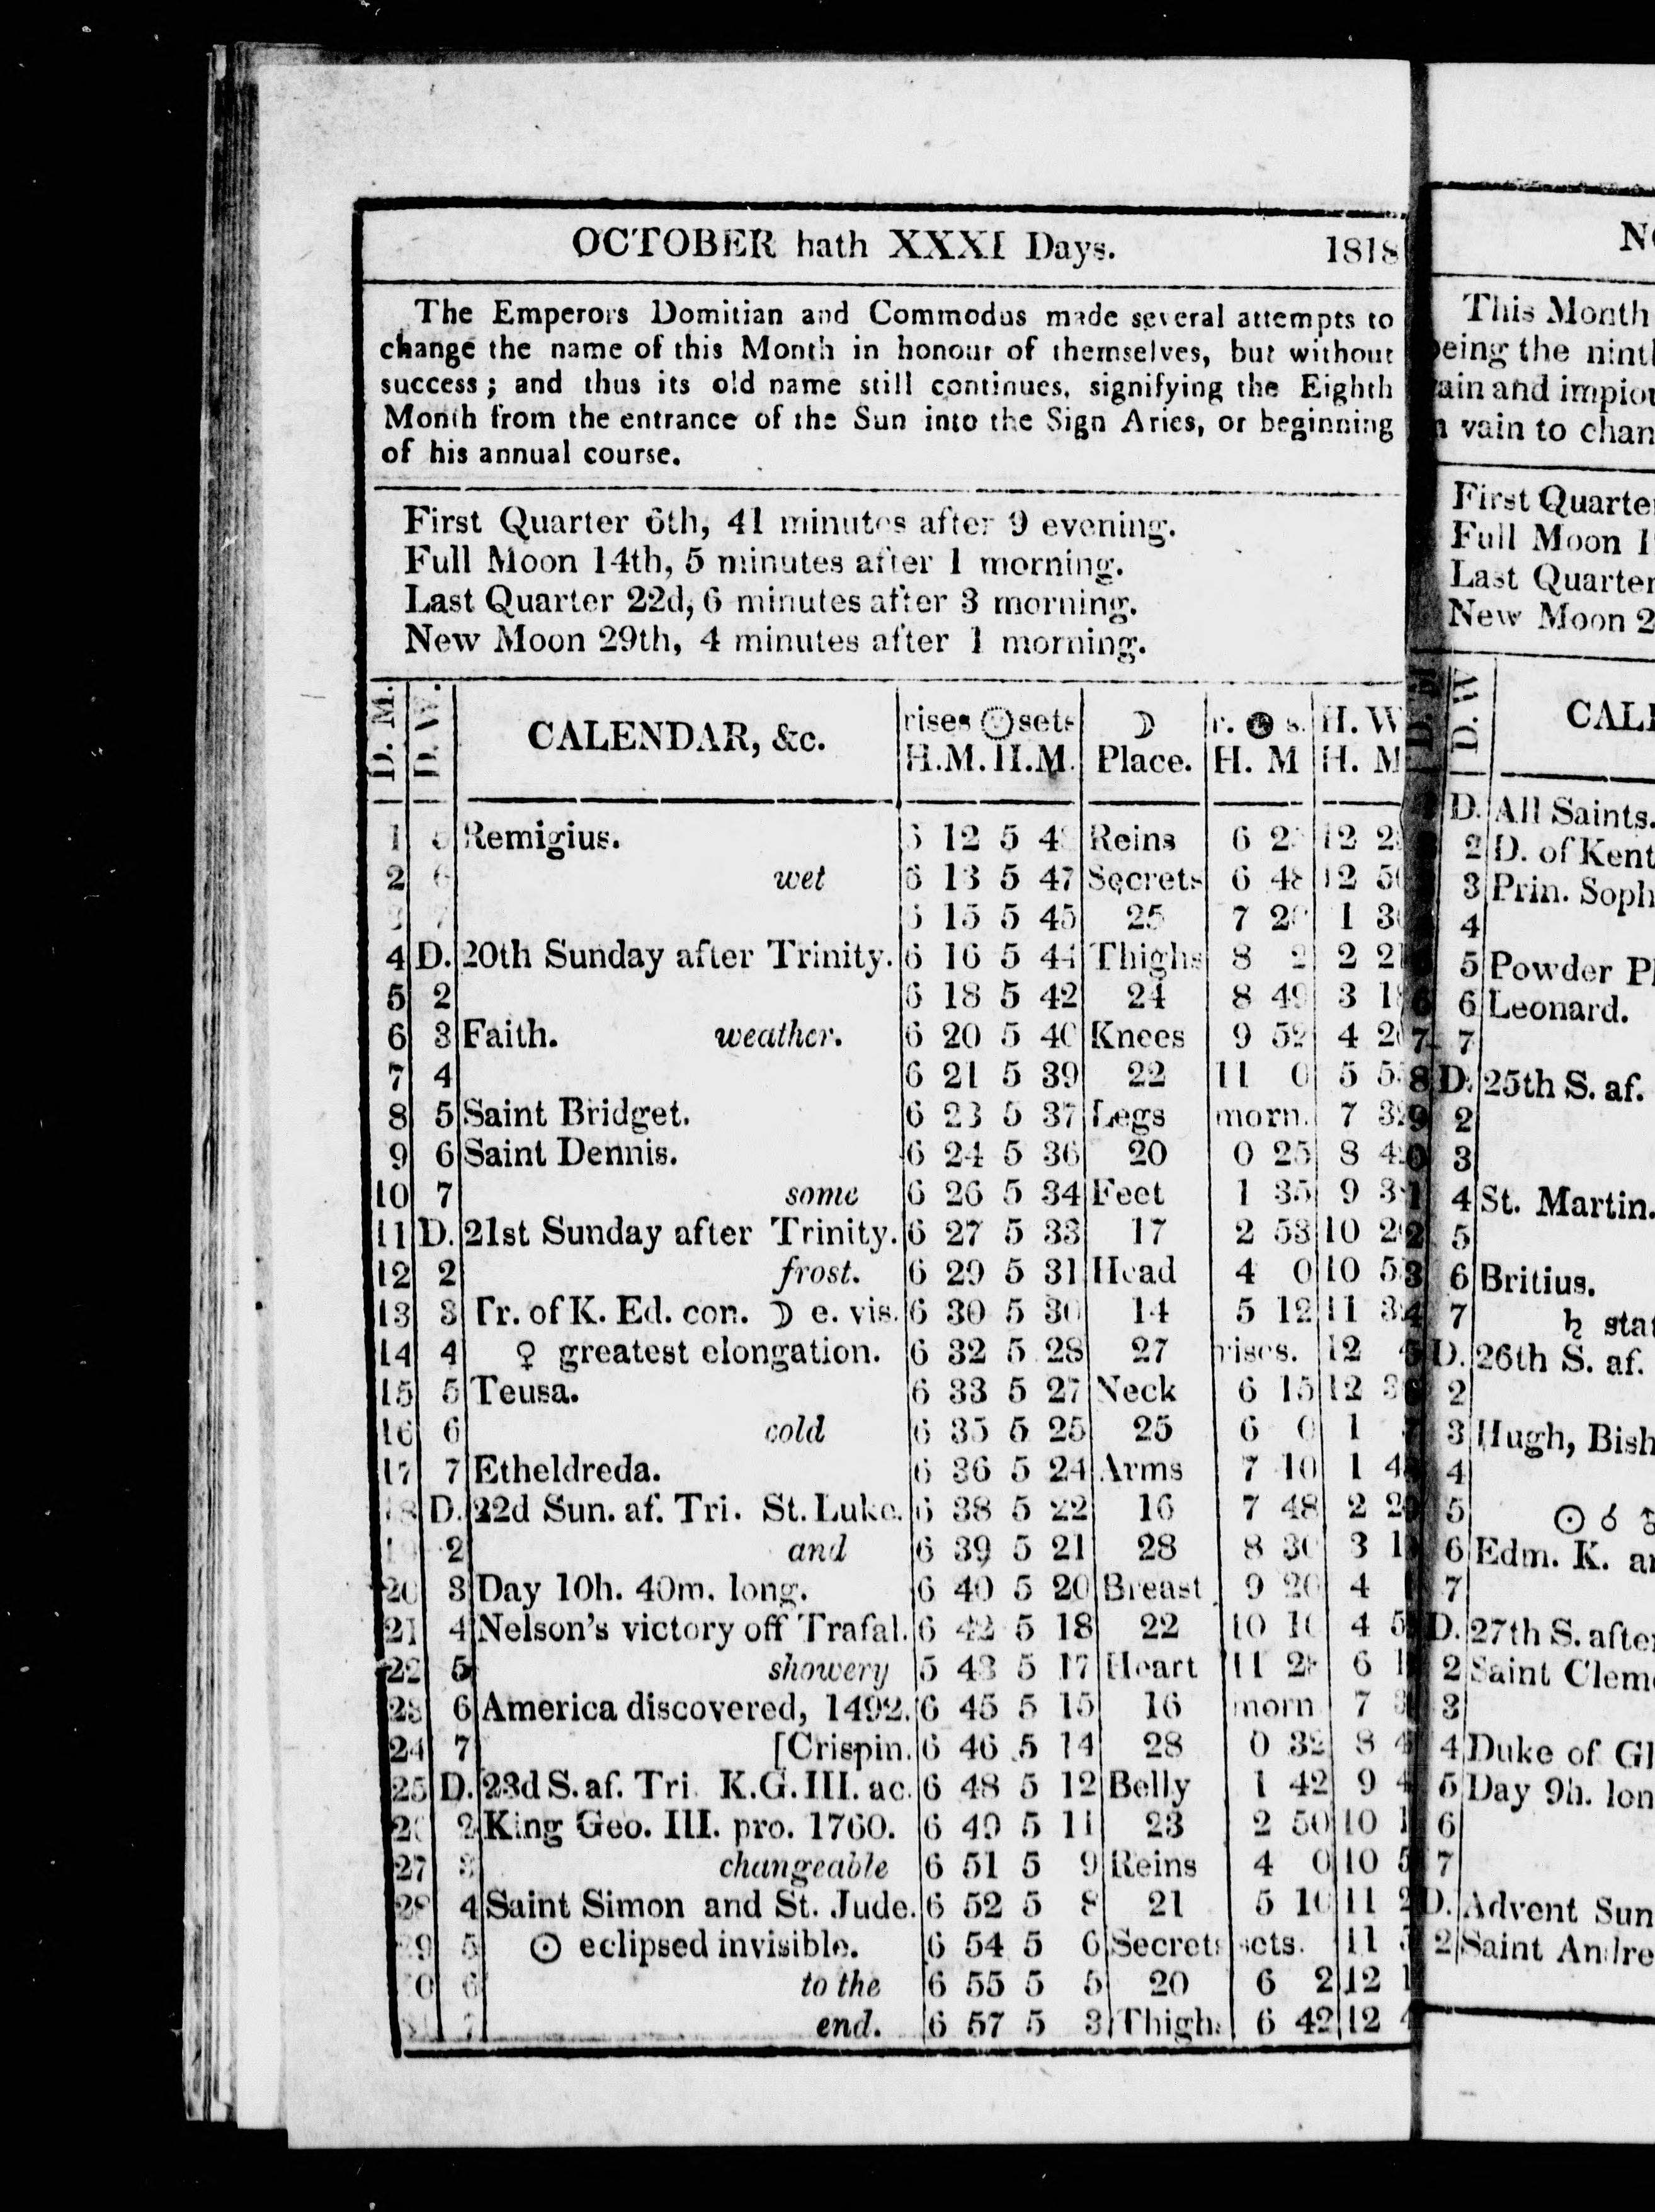 OCTOBER hath XXXI Days. 1818
The Emperors Domitian and Commodus made several attempts to
change the name of this Month in honour of themselves, but without
success; and thus its old name still continues, signifying the Eighth
Month from the entrance of the Sun into the Sign Aries, or beginning
of his annual course.
First Quarter 6th, 41 minutes after 9 evening.
Full Moon 14th, 5 minutes after 1 morning.
Last Quarter 22d, 6 minutes after 3 morning.
New Moon 29th, 4 minutes after 1 morning.
D. M. D. W. CALENDAR, &c. rises ☉ sets ☽ r. s. H. W
H.M. H.M. Place. H. M H. M
1 5 Remigius. 12 5 Reins 6 12
2 6 wet 6 13 5 47 Secrets 6 48 12
3 7 15 5 45 25 7 1
4 D. 20th Sunday after Trinity. 6 16 5 44 Thighs 8 2 2
5 2 6 18 5 42 24 8 49 3
6 3 Faith. weather. 6 20 5 40 Knees 9 52 4
7 4 6 21 5 39 22 11 0 5
8 5 Saint Bridget. 6 23 5 37 Legs morn. 7
9 6 Saint Dennis. 6 24 5 36 20 0 25 8
10 7 some 6 26 5 34 Feet 1 35 9
11 D. 21st Sunday after Trinity. 6 27 5 33 17 2 53 10
12 2 frost. 6 29 5 31 Head 4 0 10
13 3 Tr. of K. Ed. con. ☽ e. vis. 6 30 5 30 14 5 12 11
14 4 ♀ greatest elongation. 6 32 5 28 27 rises. 12
15 5 Teusa. 6 33 5 27 Neck 6 15 12
16 6 cold 6 35 5 25 25 6 0 1
17 7 Etheldreda. 6 36 5 24 Arms 7 10 1
18 D. 22d Sun. af. Tri. St. Luke. 6 38 5 22 16 7 48 2
2 and 6 39 5 21 28 8 30 3
20 3 Day 10h. 40m. long. 6 40 5 20 Breast 9 20 4
21 4 Nelson's victory off Trafal. 6 42 5 18 22 10 4
22 5 showery 5 43 5 17 Heart 11 6
23 6 America discovered, 1492. 6 45 5 15 16 morn 7
24 7 [Crispin. 6 46 5 14 28 0 32 8
25 D. 23d S. af. Tri. K.G.III. ac. 6 48 5 12 Belly 1 42 9
26 2 King Geo. III. pro. 1760. 6 49 5 11 23 2 50 10
27 3 changeable 6 51 5 9 Reins 4 0 10
28 4 Saint Simon and St. Jude. 6 52 5 8 21 5 11
5 ☉ eclipsed invisible. 6 54 5 6 Secrets sets. 11
6 to the 6 55 5 5 20 6 2 12
7 end. 6 57 5 3 Thighs 6 42 12
This Month
being the
vain and
vain to
First
Full Moon
Last
New Moon
D. M D. W
D. All Saints.
2 D. of Kent
3 Prin.
4
5 Powder
6 6 Leonard.
7 7
8 D. 25th S. af.
9 2
3
4 St. Martin.
5
6 Britius.
7 ♄
D. 26th S. af.
2
3 Hugh,
4
5 ☉ ☌
6 Edm. K.
7
D. 27th S.
2 Saint
3
4 Duke of
5 Day 9h.
6
7
D. Advent
2 Saint